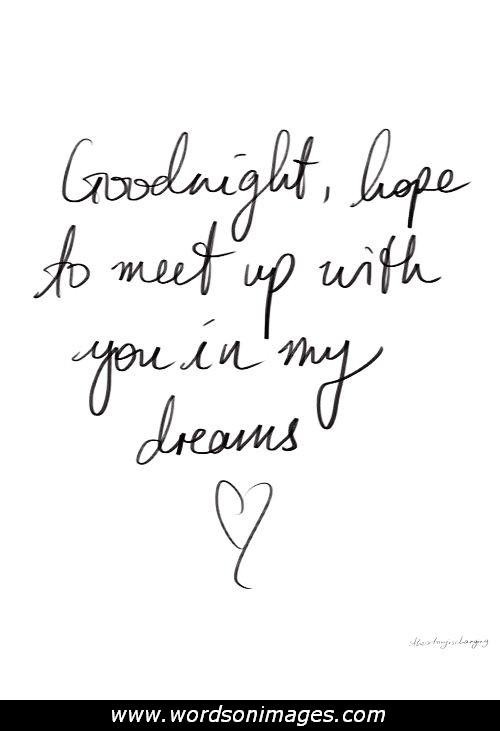 Goodnight, hope
to meet up with
you in my
dreams
www.wordsonimages.com